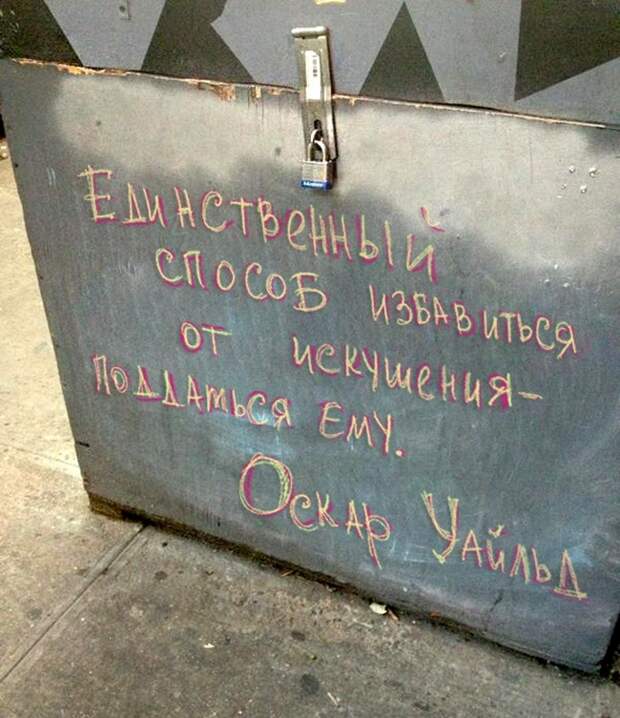 Единственный
способ избавиться
от искушения-
поддаться ему.
Оскар Уайльд